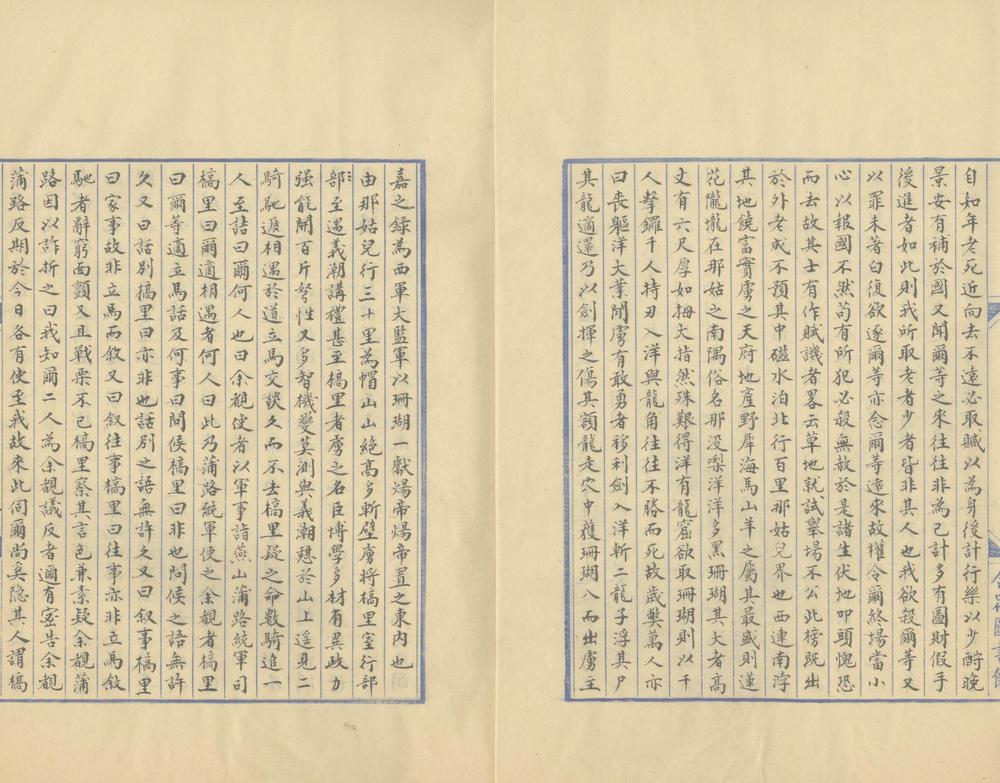 自知年老死近向去不遠必取贓以為身後計行樂以少酧晚
景安有補於國又聞爾等之來往往非為己計多有圖財假手
後進者如此則我所取老者少者皆非其人也我欲殺爾等又
以罪未著白復欲逐爾等亦念爾等遠來故權令爾終場當小
心以報國不然苟有所犯必殺無赦於是諸生伏地叩頭愧恐
而去故其士有作賦譏者畧云草地就試舉場不公此榜既出
於外老成不預其中磁水泊北行百里那姑兒界也西連南浮
其地饒富實虜之天府地產野犀海馬山羊之屬其最盛則蓮
花隴隴在那姑之南隅俗名那沒梨洋洋多黑珊瑚其大者高
丈有六尺厚如拇大指然殊艱得洋有龍窟欲取珊瑚則以千
人擊鑼千人持刃入洋與龍角往往不勝而死故歲斃萬人亦
曰喪軀洋大業閒虜有敢勇者移利劍入洋斬二龍子浮其尸
其龍適還乃以劍揮之傷其額龍走穴中獲珊瑚八而出虜主
嘉之錄為西軍大監軍以珊瑚一獻煬帝煬帝置之東內也
由那姑兒行三十里為帽山山絕高多斬壁虜將槁里室行部
部至遇義潮講禮甚至槁里者虜之名臣博學多材有異政力
强能開百斤弩性又多智機變莫測與義潮憩於山上遥見二
騎馳遞相遇於道立馬交談久而不去槁里疑之命數騎追一
人至詰曰爾何人也曰余覩使者以軍事詣燕山蒲路統軍司
槁里曰爾適相遇者何人曰此乃蒲路統軍使之余覩者槁里
曰爾等適立馬話及何事曰問候槁里曰非也問候之語無許
久又曰話別槁里曰亦非也話別之語無許久又曰叙事槁里
曰家事故非立馬而敘又曰叙往事槁里曰往事亦非立馬敘
馳者辭窮面顫又且戰栗不已槁里察其言色兼素疑余覩蒲
路因以詐折之曰我知爾二人為余覩議反者邇有密告余覩
蒲路反期於今日各有使至我故來此伺爾尚奚隐其人謂槁